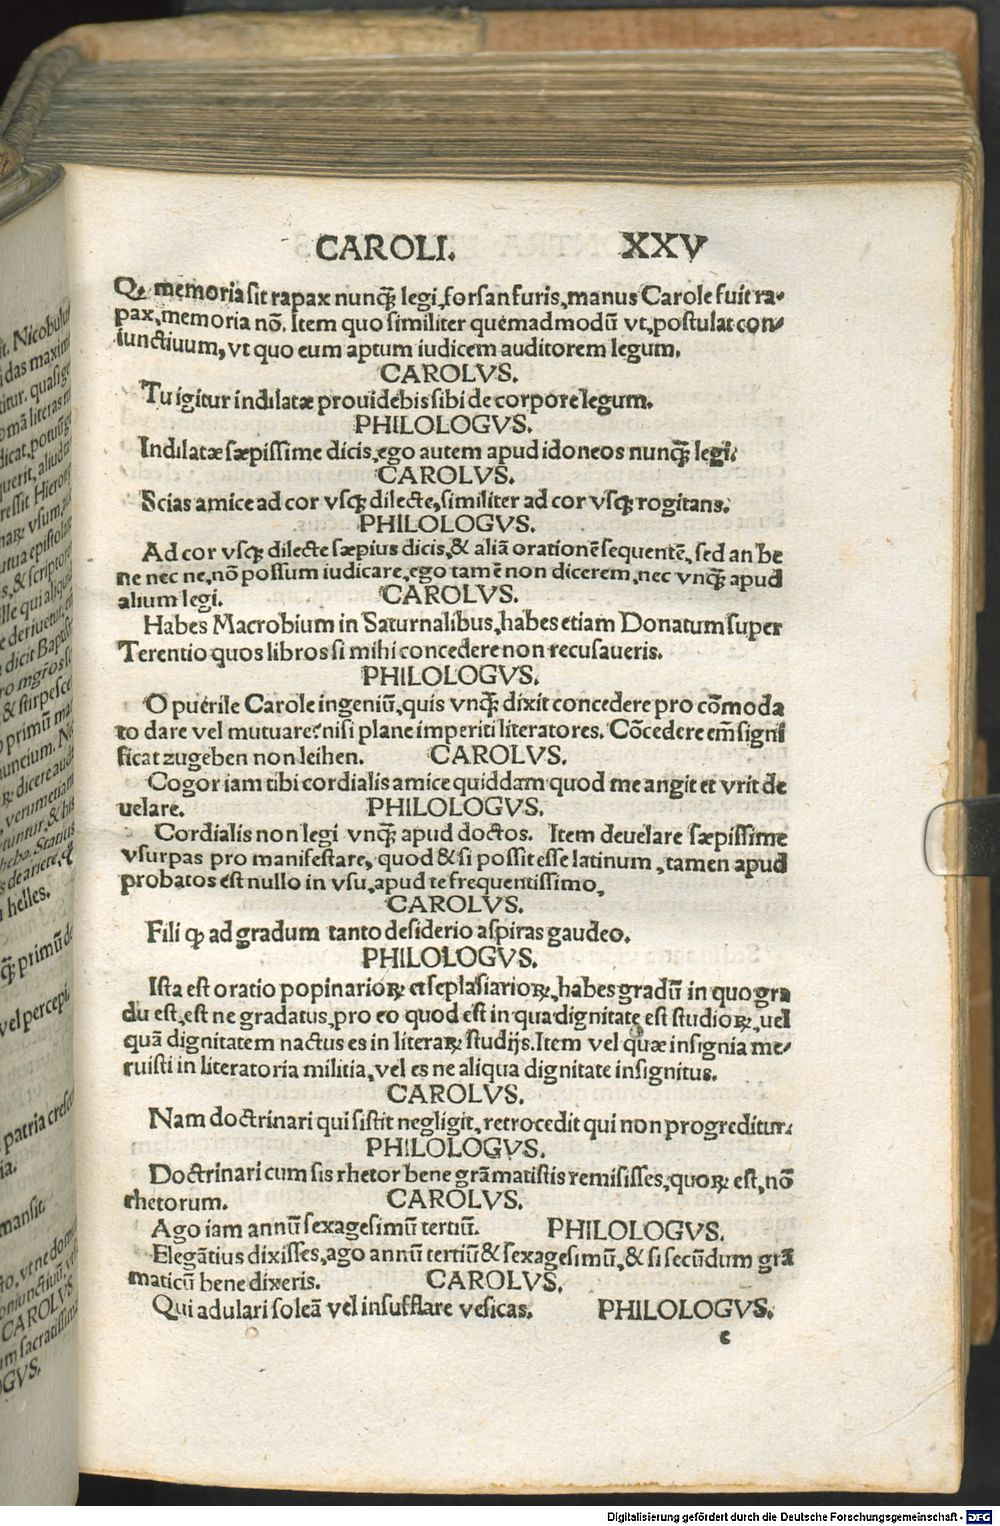 CAROLI. XXV
Qɜ memoria sit rapax nunqȝ legi, forsan furis, manus Carole fuit ra-
pax, memoria nō. Item quo similiter quemadmodū vt, postulat con-
iunctiuum, vt quo eum aptum iudicem auditorem legum.
CAROLVS.
Tu igitur indilatæ prouidebis sibi de corpore legum.
PHILOLOGVS.
Indilatæ sæpissime dicis, ego autem apud idoneos nunqȝ legi.
CAROLVS.
Scias amice ad cor vsqȝ dilecte, similiter ad cor vsqȝ rogitans.
PHILOLOGVS.
Ad cor vsqȝ dilecte sæpius dicis, & aliā orationē sequentē, sed an be
ne nec ne, nō possum iudicare, ego tamē non dicerem, nec vnqȝ apud
alium legi. CAROLVS.
Habes Macrobium in Saturnalibus, habes etiam Donatum super
Terentio quos libros si mihi concedere non recusaueris.
PHILOLOGVS.
O puerile Carole ingeniū, quis vnqȝ dixit concedere pro cōmoda
to dare vel mutuare? nisi plane imperiti literatores. Cōcedere em̄ signi
ficat zugeben non leihen. CAROLVS.
Cogor iam tibi cordialis amice quiddam quod me angit et vrit de
uelare. PHILOLOGVS.
Cordialis non legi vnqȝ apud doctos. Item deuelare sæpissime
vsurpas pro manifestare, quod & si possit esse latinum, tamen apud
probatos est nullo in vsu, apud te frequentissimo,
CAROLVS.
Fili ꝙ ad gradum tanto desiderio aspiras gaudeo.
PHILOLOGVS.
Ista est oratio popinarioꝝ et seplasiarioꝝ, habes gradū in quo gra
du est, est ne gradatus, pro eo quod est in qua dignitate est studioꝝ, uel
quā dignitatem nactus es in literaꝝ studijs. Item vel quæ insignia me-
ruisti in literatoria militia, vel es ne aliqua dignitate insignitus.
CAROLVS.
Nam doctrinari qui sistit negligit, retrocedit qui non progreditur.
PHILOLOGVS.
Doctrinari cum sis rhetor bene grāmatistis remisisses, quoꝝ est, nō
rhetorum. CAROLVS.
Ago iam annū sexagesimū tertiū. PHILOLOGVS.
Elegātius dixisses, ago annū tertiū & sexagesimū, & si secūdum grā
maticū bene dixeris. CAROLVS.
Qui adulari soleā vel insufflare vesicas. PHILOLOGVS.
c
Digitalisierung gefördert durch die Deutsche Forschungsgemeinschaft - DFG